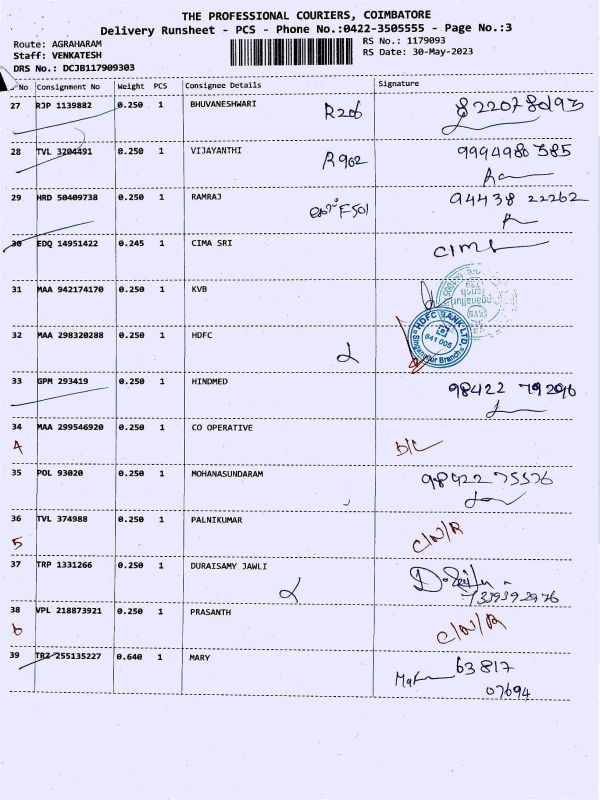 THE PROFESSIONAL COURIERS, COIMBATORE
Delivery Runsheet - PCS - Phone No.:0422-3505555 - Page No.:3
Route: AGRAHARAM
RS No.: 1179093
Staff: VENKATESH
RS Date: 30-May-2023
DRS No.: DCJB117909303
No Consignment No Weight PCS Consignee Details Signature
27 RJP 1139882 0.250 1 BHUVANESHWARI R206
28 TVL 3204491 0.250 1 VIJAYANTHI R902 9994980 385
29 HRD 50409738 0.250 1 RAMRAJ F501 94438 22262
30 EDQ 14951422 0.245 1 CIMA SRI
31 MAA 942174170 0.250 1 KVB
32 MAA 298320288 0.250 1 HDFC
HDFC BANK LTD.
641 005
Singanallur Branch
33 GPM 293419 0.250 1 HINDMED 98422 79296
34 MAA 299546920 0.250 1 CO OPERATIVE D/C
4
35 POL 93020 0.250 1 MOHANASUNDARAM 98422 75576
36 TVL 374988 0.250 1 PALNIKUMAR C/N/R
5
37 TRP 1331266 0.250 1 DURAISAMY JAWLI
38 VPL 218873921 0.250 1 PRASANTH C/N/R
6
39 TRZ 255135227 0.640 1 MARY 63817
07694